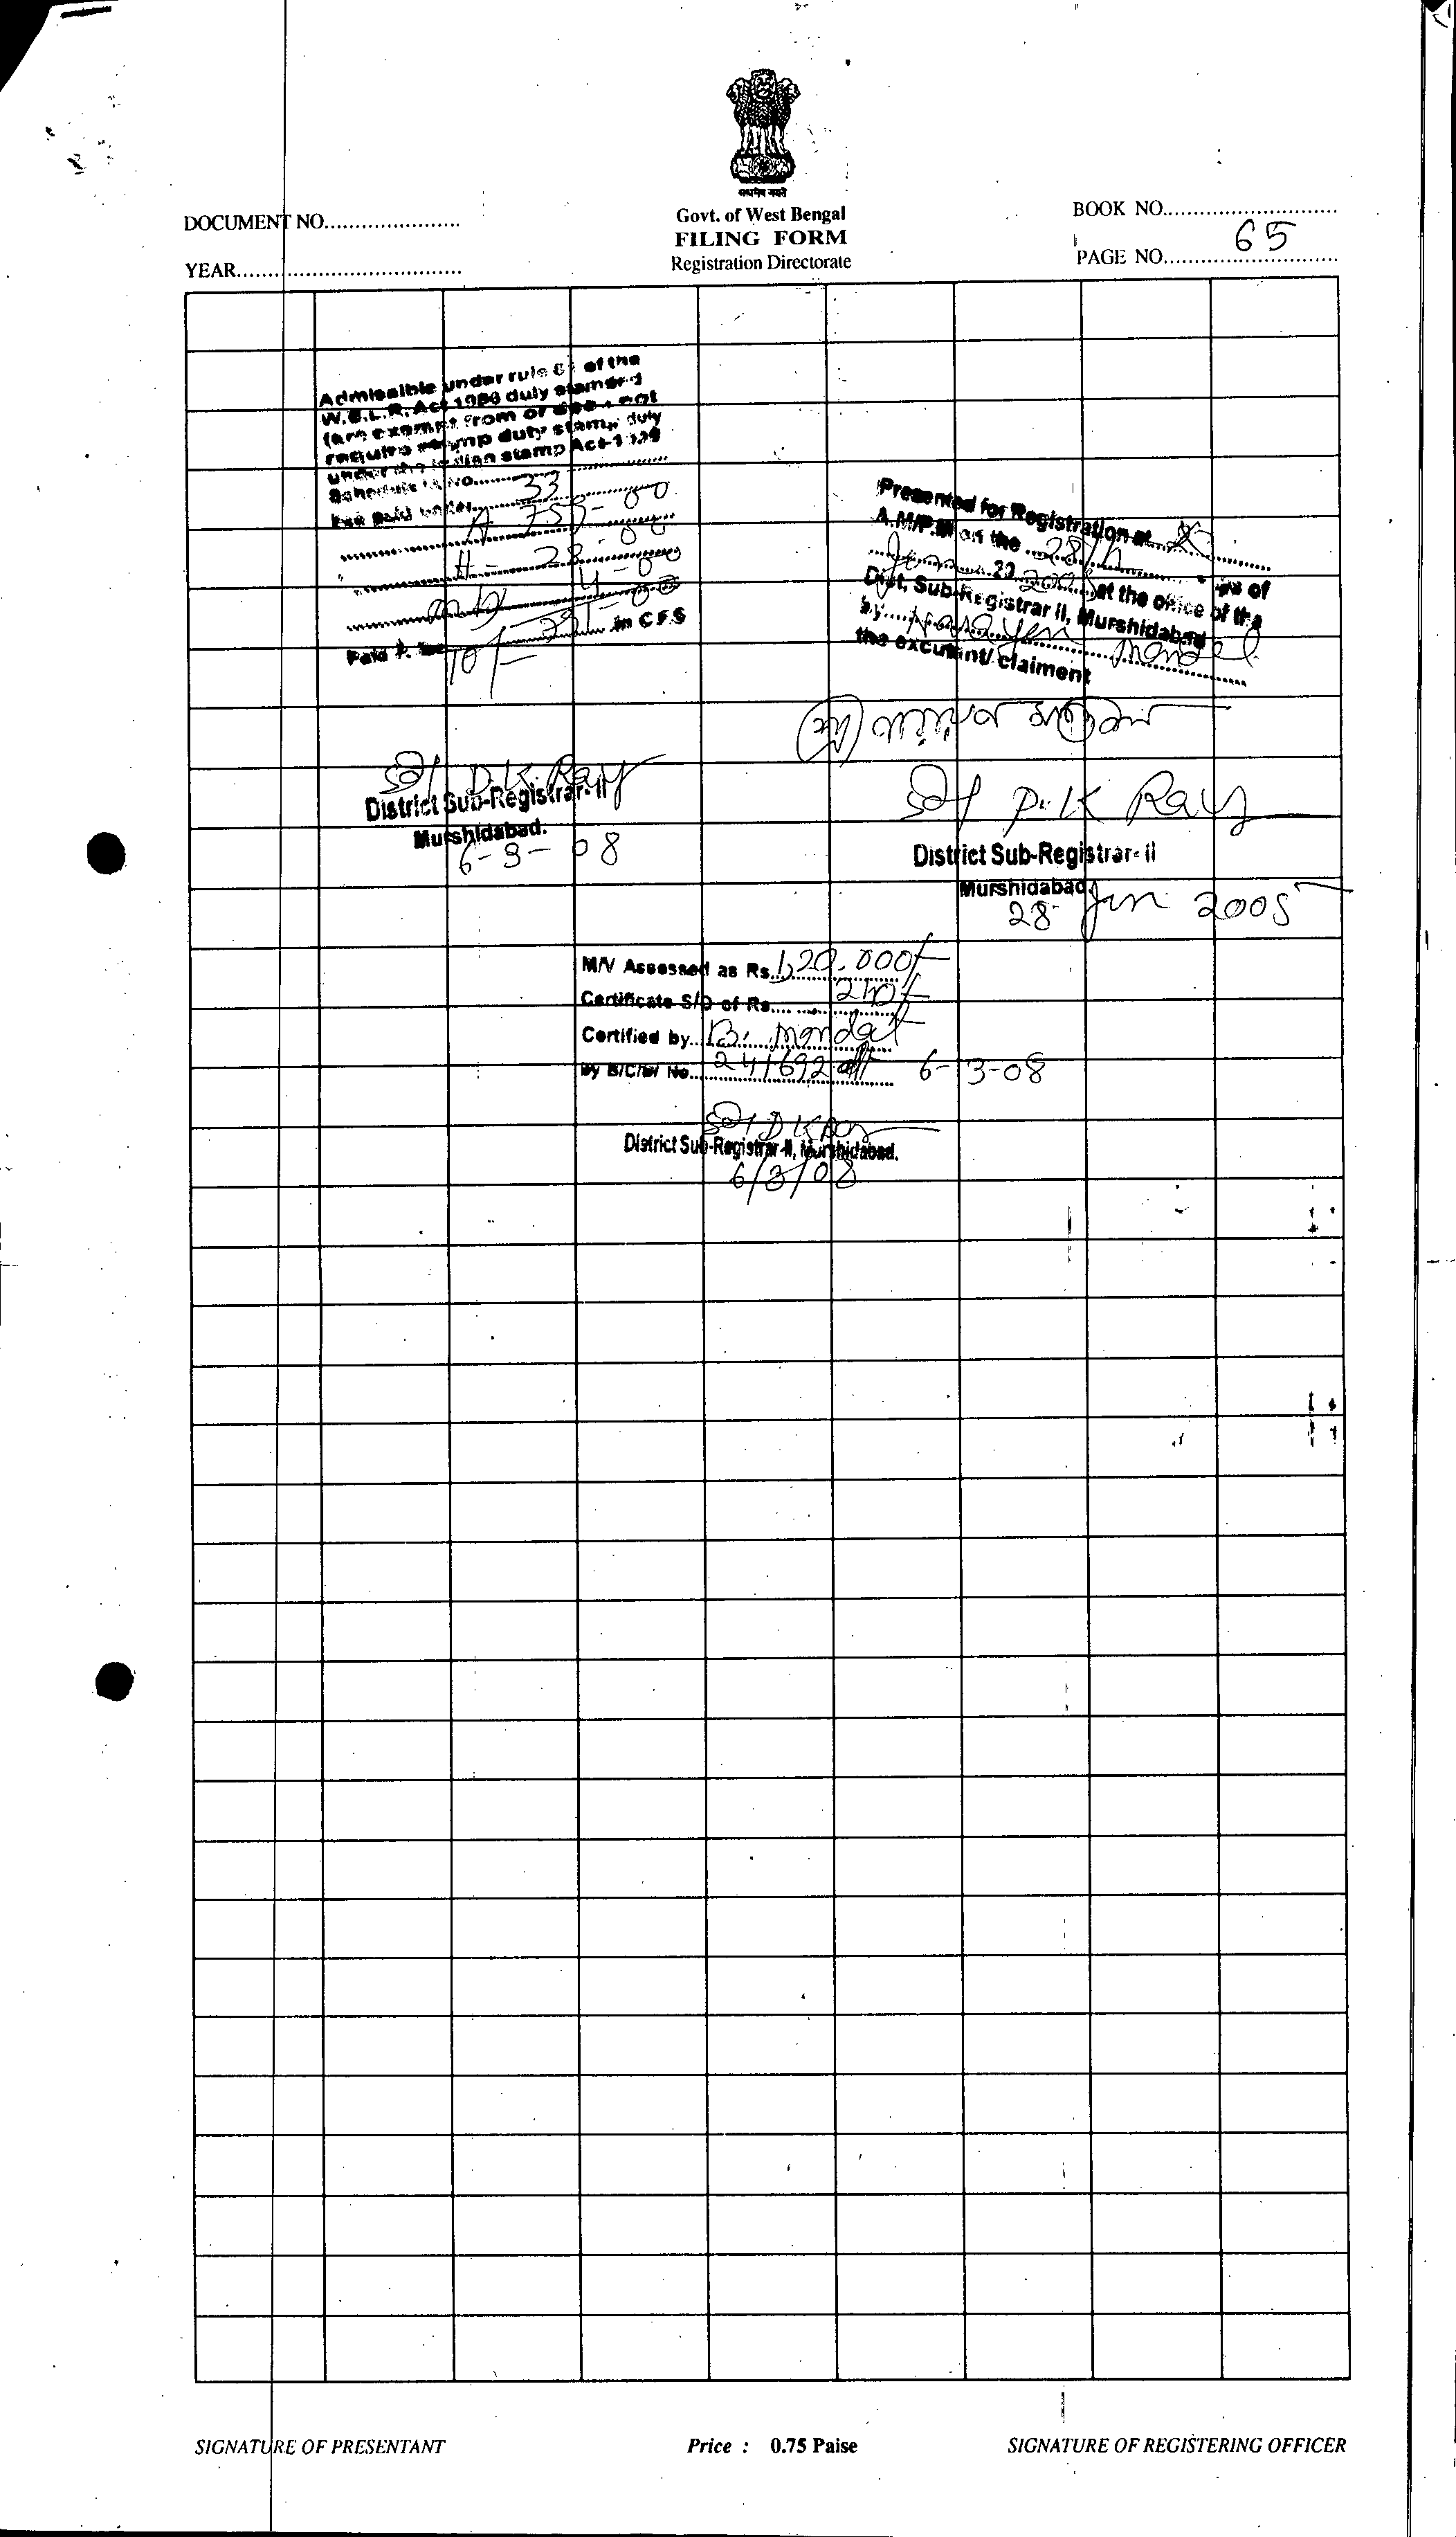 सत्यमेव जयते
Govt. of West Bengal
FILING FORM
Registration Directorate
DOCUMENT NO......................
YEAR....................................
BOOK NO............................
PAGE NO. 65
Admissible under rule of the
W.B.L.R. Act duly
(are exempt from or not
require stamp duty stamp duty
under the Indian stamp Act
Schedule No. 33
Fee paid under
A 755-00
H - 28-00
4-00
in C.F.S
Paid
10/-
Sd/ D.K. Ray
District Sub-Registrar-II
Murshidabad.
6-3-08
Presented for Registration at
A.M/P.M on the 28th
20 2005 at the office of the
Dist. Sub-Registrar II, Murshidabad
by Narayan Mondal
the excutint/claiment
নারায়ণ মণ্ডল
Sd/ D.K Ray
District Sub-Registrar-II
Murshidabad
28 Jan 2005
M/V Assessed as Rs. 1,20,000/-
Certificate S/D of Rs.
Certified by B. Mondal
by B/C/BW No. 241692 dt 6-3-08
Sd/ D K Ray
District Sub-Registrar-II, Murshidabad.
6/3/08
SIGNATURE OF PRESENTANT
Price : 0.75 Paise
SIGNATURE OF REGISTERING OFFICER